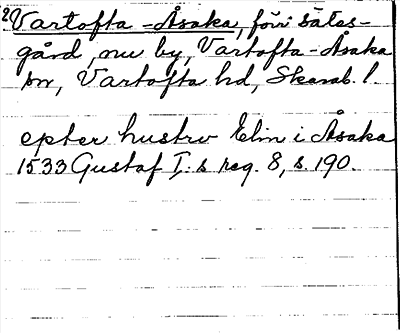 2) Vartofta-Åsaka, förr sätes-
gård, nu by, Vartofta-Åsaka
sn, Vartofta hd, Skarab. l.
epter hustrv Elin i Åsaka
1533 Gustaf I:s reg. 8, s. 190.